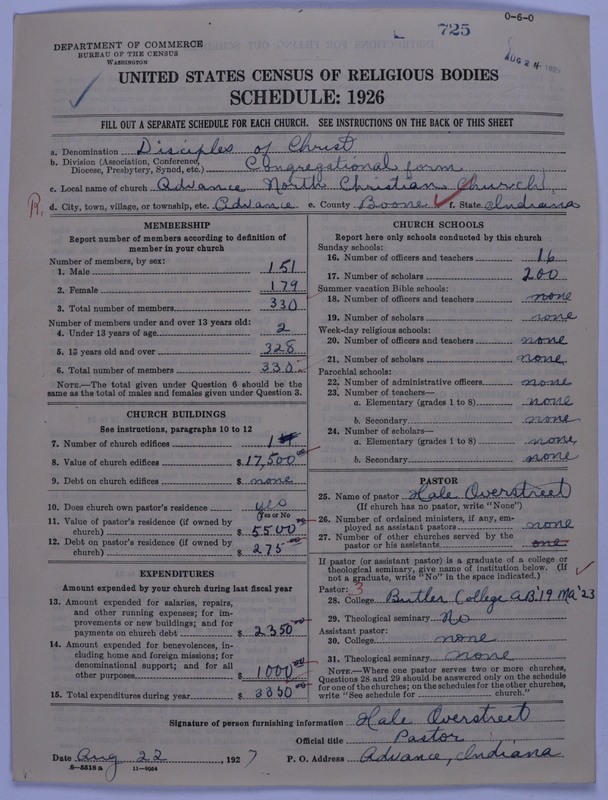 0-6-0
725
AUG 24
DEPARTMENT OF COMMERCE
BUREAU OF THE CENSUS
WASHINGTON
UNITED STATES CENSUS OF RELIGIOUS BODIES
SCHEDULE: 1926
FILL OUT A SEPARATE SCHEDULE FOR EACH CHURCH. SEE INSTRUCTIONS ON THE BACK OF THIS SHEET
a. Denomination Disciples of Christ
b. Division (Association, Conference, Diocese, Presbytery, Synod, etc.) Congregational form
c. Local name of church Advance North Christian Church
R. d. City, town, village, or township, etc. Advance e. County Boone f. State Indiana
MEMBERSHIP
Report number of members according to definition of
member in your church
Number of members, by sex:
1. Male 151
2. Female 179
3. Total number of members 330
Number of members under and over 13 years old:
4. Under 13 years of age 2
5. 13 years old and over 328
6. Total number of members 330
NOTE.—The total given under Question 6 should be the
same as the total of males and females given under Question 3.
CHURCH BUILDINGS
See instructions, paragraphs 10 to 12
7. Number of church edifices 1
8. Value of church edifices $17,500 00
9. Debt on church edifices $ none
10. Does church own pastor's residence yes
(Yes or No)
11. Value of pastor's residence (if owned by
church) $5500 00
12. Debt on pastor's residence (if owned by
church) $275 00
EXPENDITURES
Amount expended by your church during last fiscal year
13. Amount expended for salaries, repairs,
and other running expenses; for im-
provements or new buildings; and for
payments on church debt $2350 00
14. Amount expended for benevolences, in-
cluding home and foreign missions; for
denominational support; and for all
other purposes $1000 00
15. Total expenditures during year $3350 00
CHURCH SCHOOLS
Report here only schools conducted by this church
Sunday schools:
16. Number of officers and teachers 16
17. Number of scholars 200
Summer vacation Bible schools:
18. Number of officers and teachers none
19. Number of scholars none
Week-day religious schools:
20. Number of officers and teachers none
21. Number of scholars none
Parochial schools:
22. Number of administrative officers none
23. Number of teachers—
a. Elementary (grades 1 to 8) none
b. Secondary none
24. Number of scholars—
a. Elementary (grades 1 to 8) none
b. Secondary none
PASTOR
25. Name of pastor Hale Overstreet
(If church has no pastor, write "None")
26. Number of ordained ministers, if any, em-
ployed as assistant pastors none
27. Number of other churches served by the
pastor or his assistants one
If pastor (or assistant pastor) is a graduate of a college or
theological seminary, give name of institution below. (If
not a graduate, write "No" in the space indicated.)
Pastor: 3
28. College Butler College AB '19 Ma '23
29. Theological seminary No
Assistant pastor:
30. College none
31. Theological seminary none
NOTE.—Where one pastor serves two or more churches,
Questions 28 and 29 should be answered only on the schedule
for one of the churches; on the schedules for the other churches,
write "See schedule for church."
Signature of person furnishing information Hale Overstreet
Official title Pastor
Date Aug 22, 1927 P. O. Address Advance, Indiana
8-5518a 11-9054